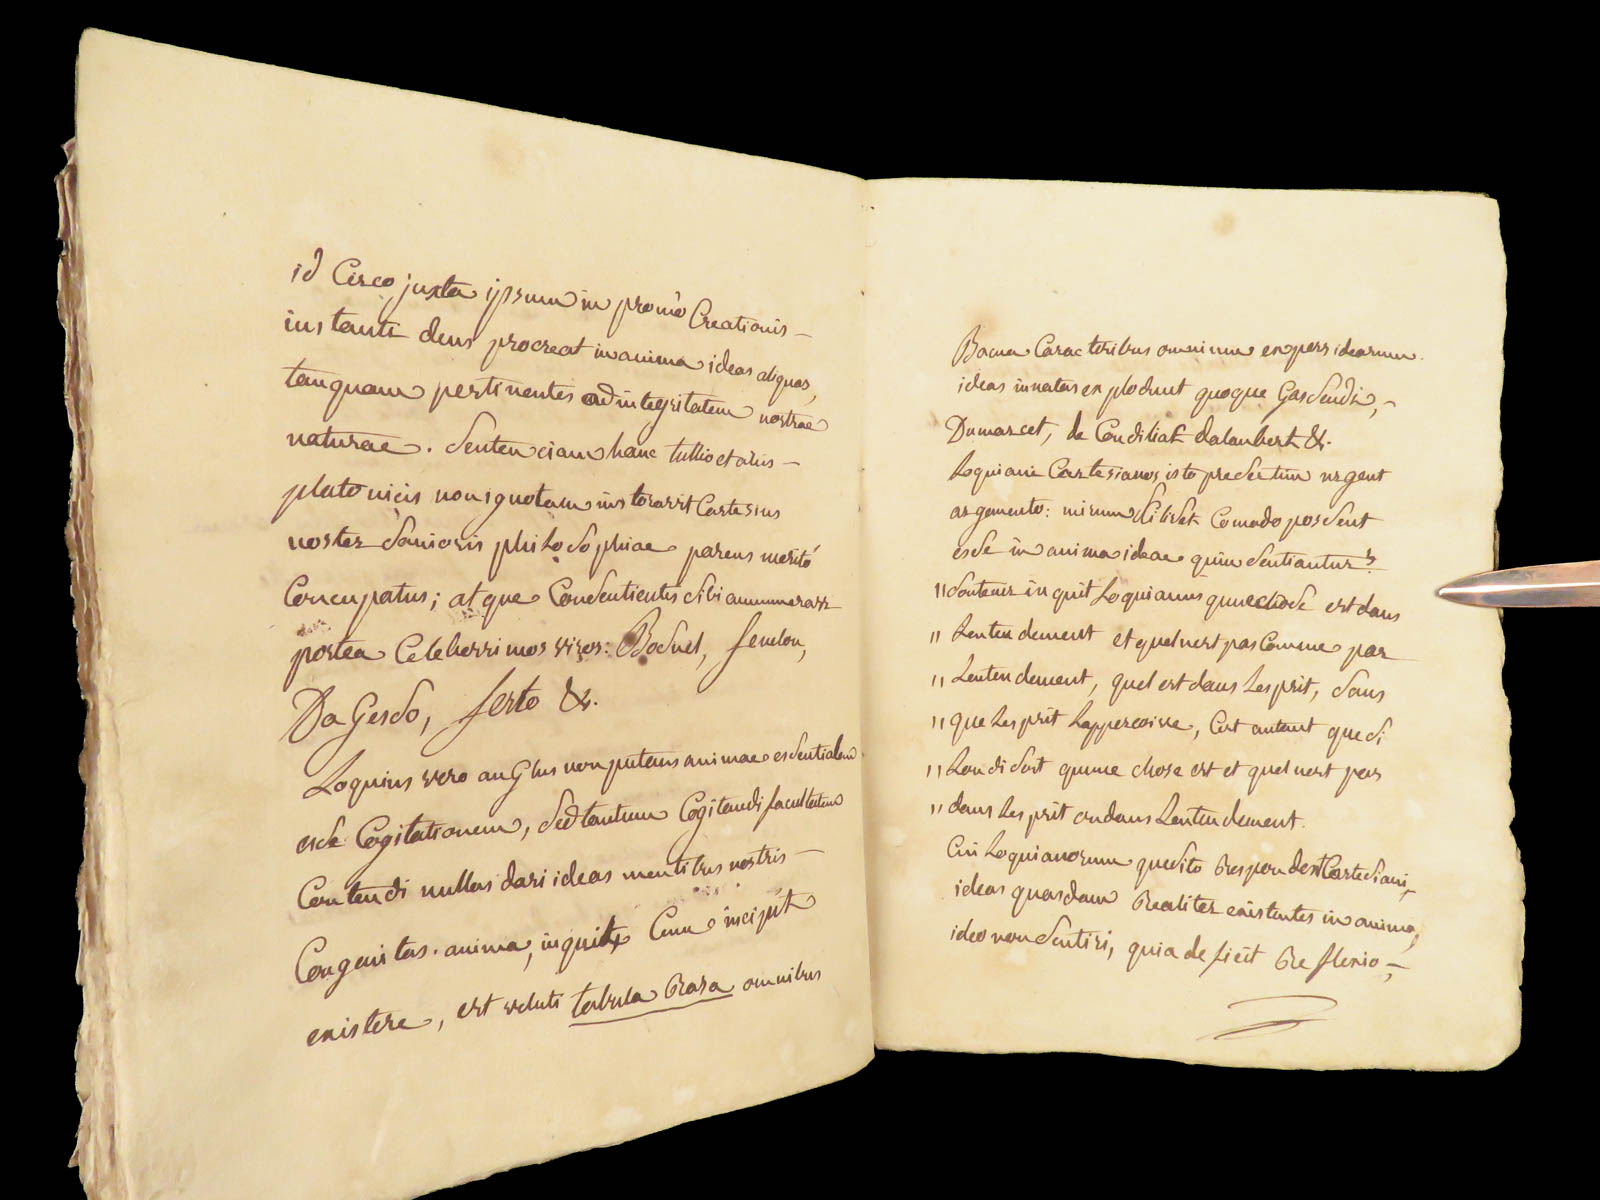 id Circo juxta ipsum in primo Creationis –
instanti deus procreat in anima ideas aliquas,
tanquam pertinentes ad integritatem nostrae
naturae. Sentenciam hanc tullio et aliis –
platonicis non ignotam instoravit Cartesius
noster Sanioris philosophiae parens meritò
Concupatus; atque Consentientes sibi annumeravit
postea Celeberrimos viros: Bosuet, fenelon,
Da Gesdo, ferto &.
Loquius vero anglus non putans animae essentialem
esse Cogitationem, Sed tantum Cogitandi facultatem
Contendi nullas dari ideas mentibus nostris –
Congenitas. anima, inquit, Cum incipit
existere, est veluti tabula Rasa omnibus
Bacua Caracteribus omnium expers idearum.
ideas innatas explodunt quoque Gasdendi, –
Dumarcet, de Condiliak dalanbert &.
Loquiani Cartesianos isto presertim urgent
argomento: mirum si lidet Comodo possent
esse in anima ideae quin Sentiantur?
" Soutenir inquit Loquianus qune chose est dans
" Lentendement et quel nest pas Comme par
" Lentendement, quel est dans Lesprit, Sans
" que Lesprit Lappercoive, Cest autant que Si
" Lon disoit qune chose est et quel nest pas
" dans Lesprit ou dans Lentendement.
Cui Loquianorum quesito Respondent Cartesiani,
ideas quasdam Realiter existentes in anima,
ideo non Sentiri, quia deficit Reflexio,